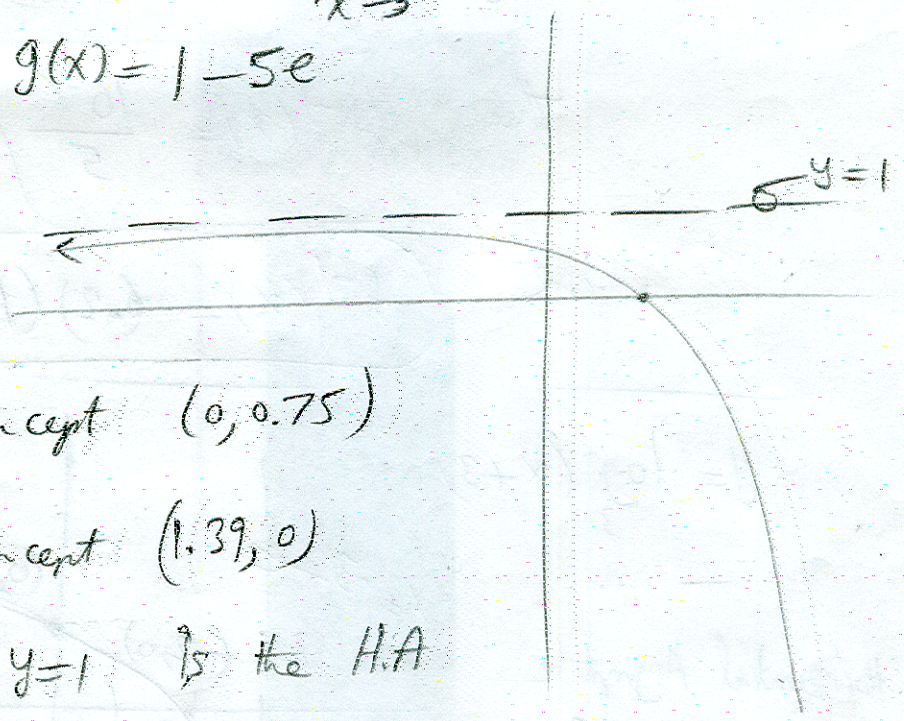 x→
g(x) = 1 – 5e
y = 1
cept (0, 0.75)
cept (1.39, 0)
y=1 Is the H.A